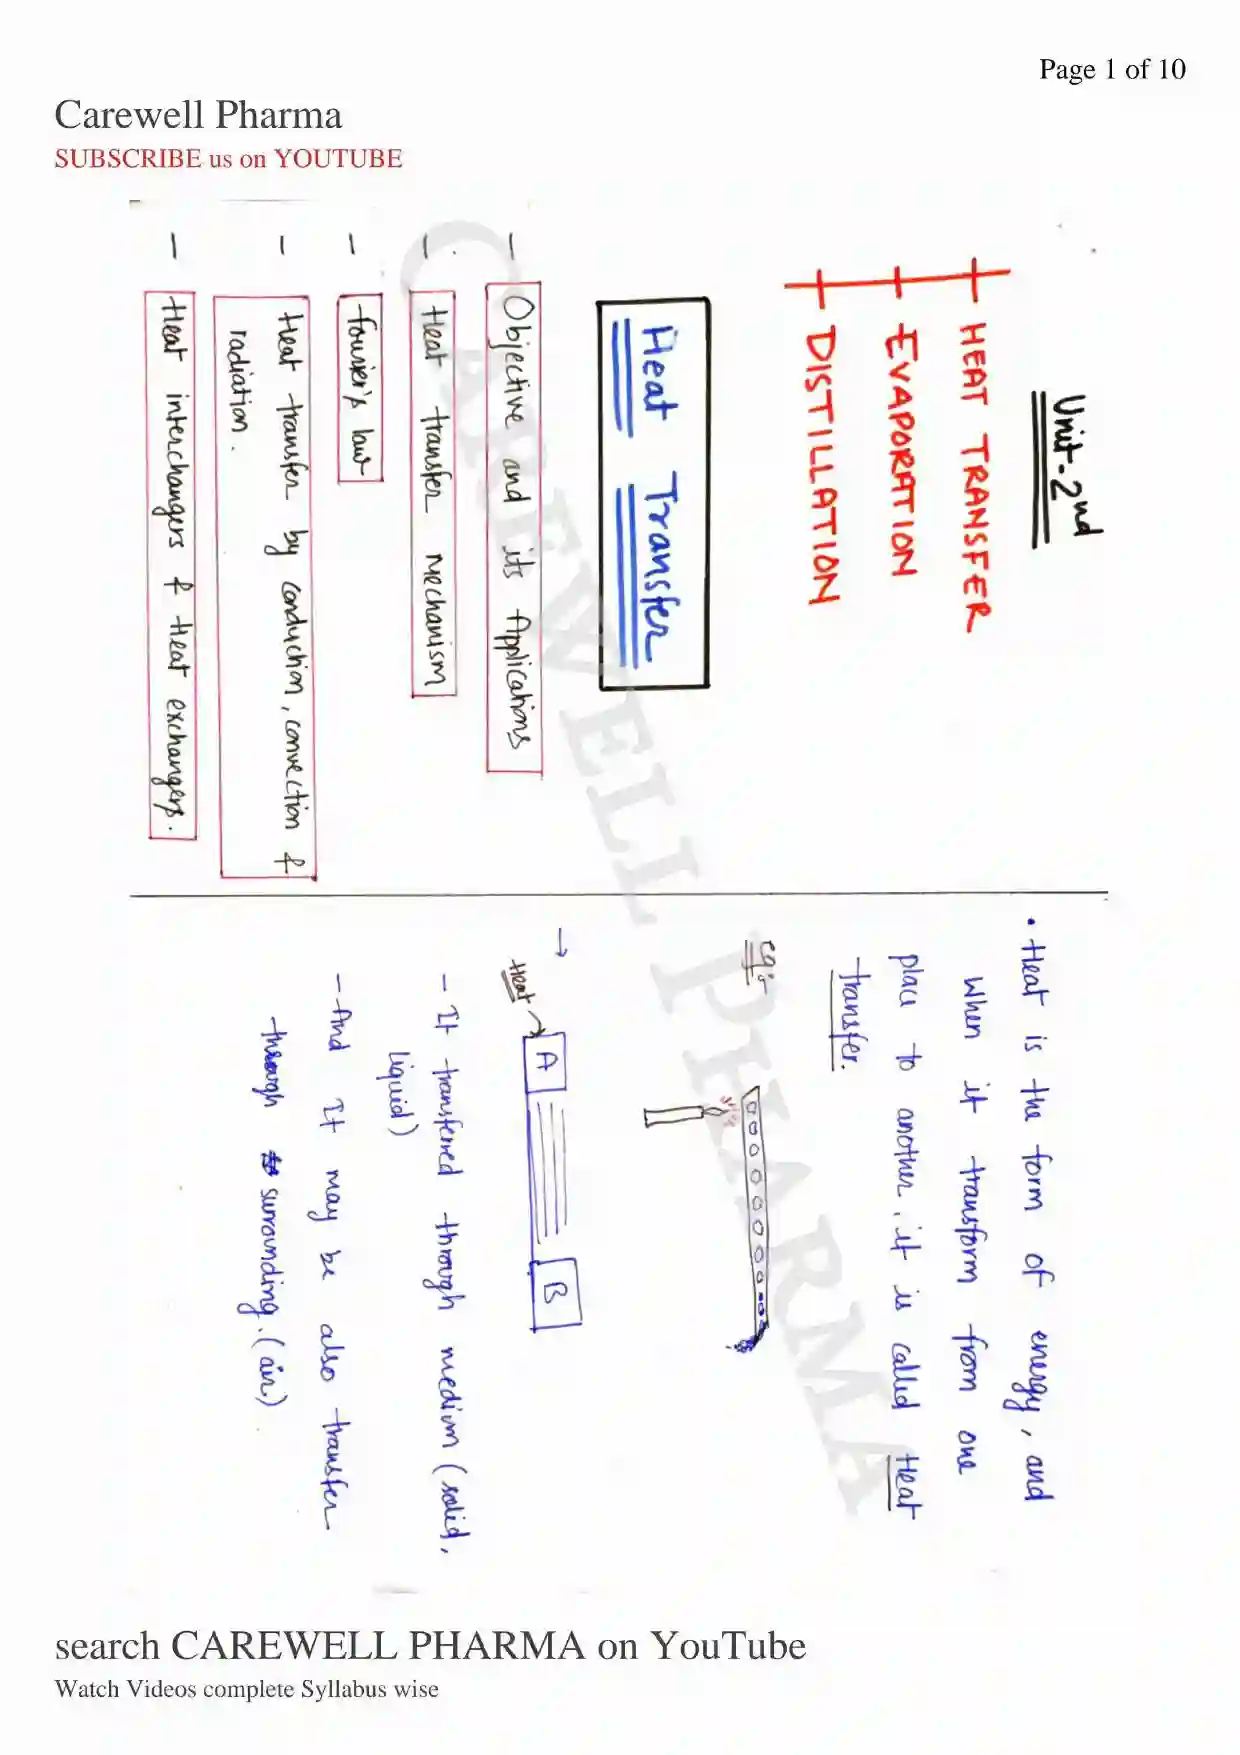 Page 1 of 10
Carewell Pharma
SUBSCRIBE us on YOUTUBE
Unit-2nd
HEAT TRANSFER
EVAPORATION
DISTILLATION
Heat Transfer
- Objective and its Applications
- Heat transfer mechanism
- fourier's law
- Heat transfer by conduction, convection &
radiation.
- Heat interchangers & heat exchangers.
• Heat is the form of energy, and
when it transform from one
place to another, it is called Heat
transfer.
eg:-
→
Heat
A
B
- It transferred through medium (solid,
liquid)
- And it may be also transfer
through surrounding. (air)
CAREWELL PHARMA
search CAREWELL PHARMA on YouTube
Watch Videos complete Syllabus wise